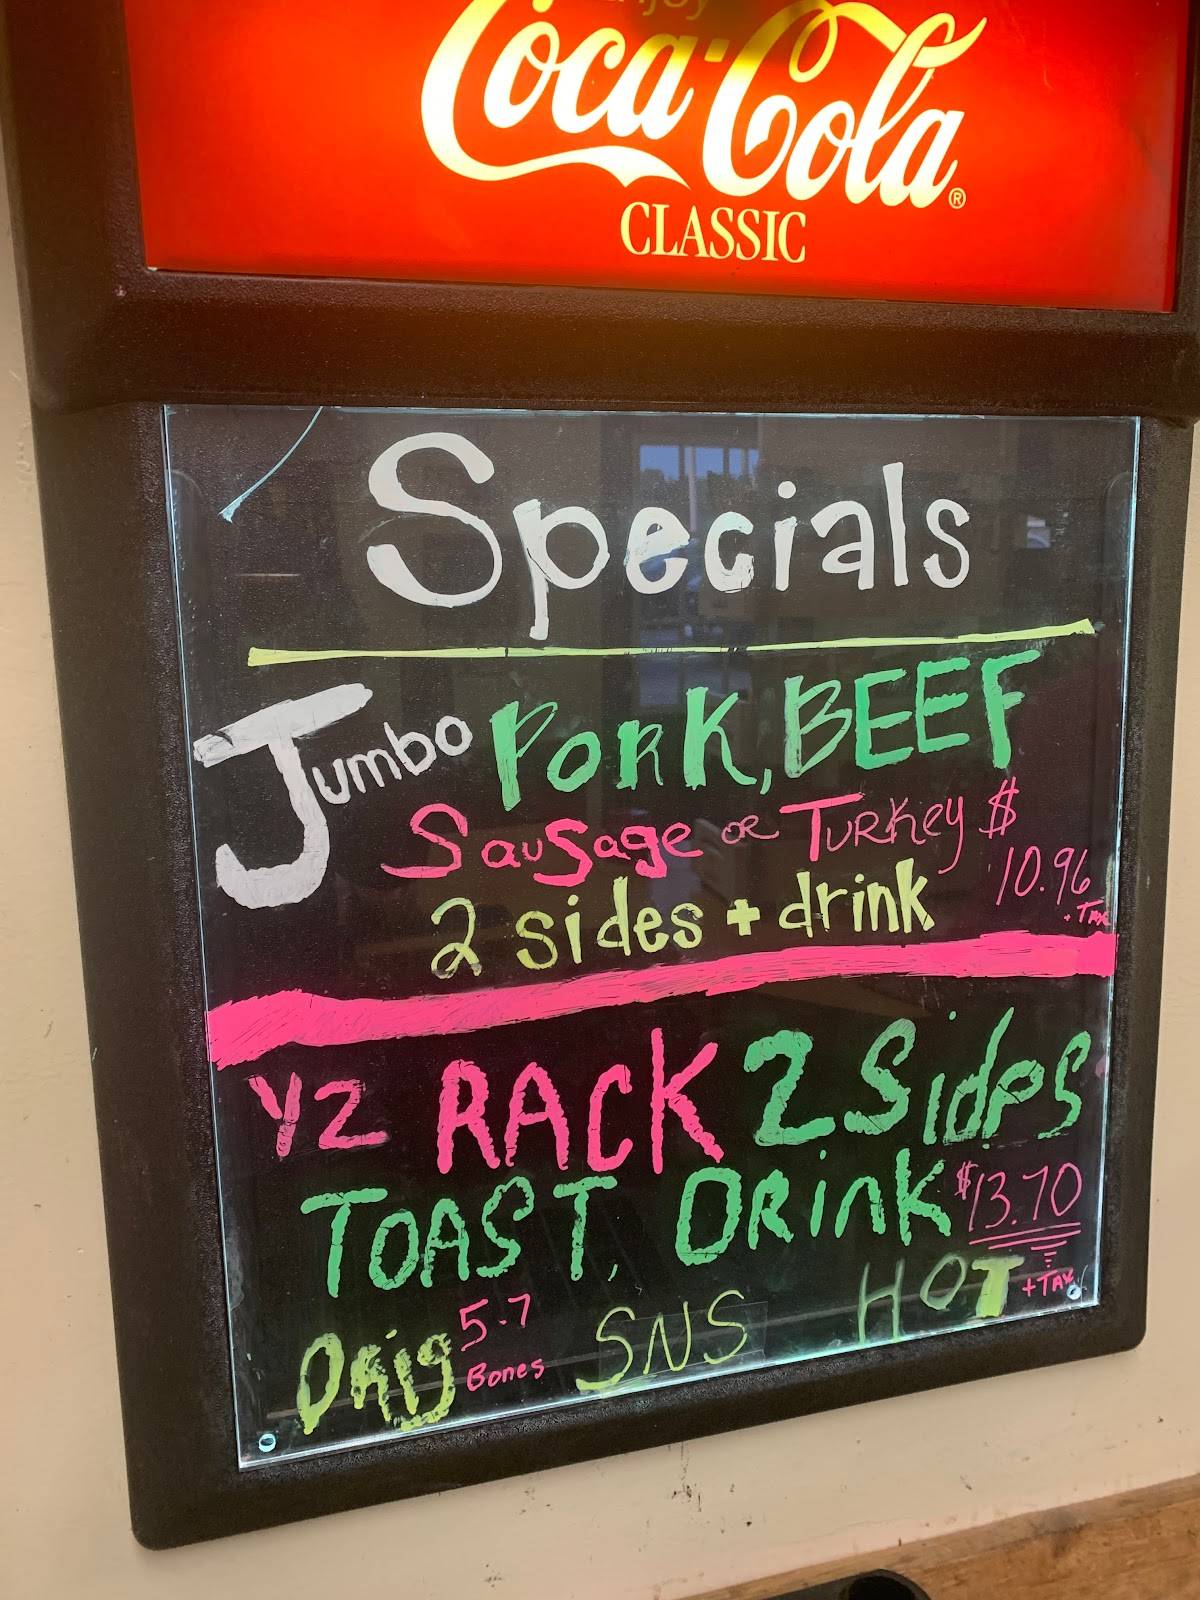 Enjoy
Coca-Cola®
CLASSIC
Specials
Jumbo Pork, BEEF
Sausage or Turkey $
10.96
+ Tax
2 sides + drink
1/2 RACK 2 Sides
TOAST, DRink $13.70
+ TAX
Orig 5-7 Bones SNS HOT